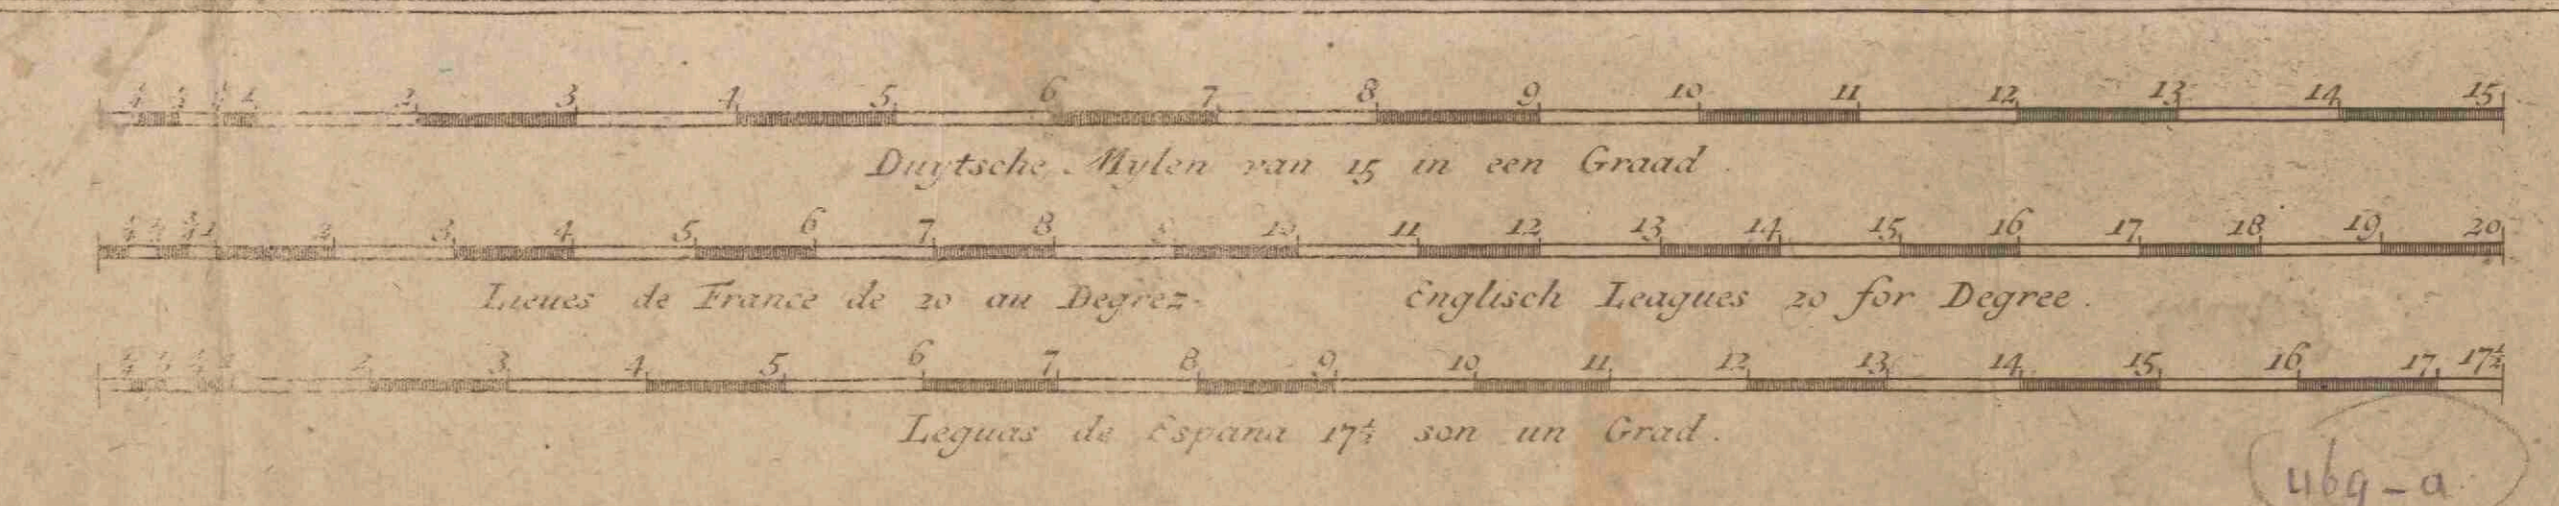 ¼ ½ ¾ 1 2 3 4 5 6 7 8 9 10 11 12 13 14 15
Duytsche Mylen van 15 in een Graad.
¼ ½ ¾ 1 2 3 4 5 6 7 8 9 10 11 12 13 14 15 16 17 18 19 20
Lieues de France de 20 au Degrez. Englisch Leagues 20 for Degree.
¼ ½ ¾ 1 2 3 4 5 6 7 8 9 10 11 12 13 14 15 16 17 17½
Leguas de Espana 17½ son un Grad.